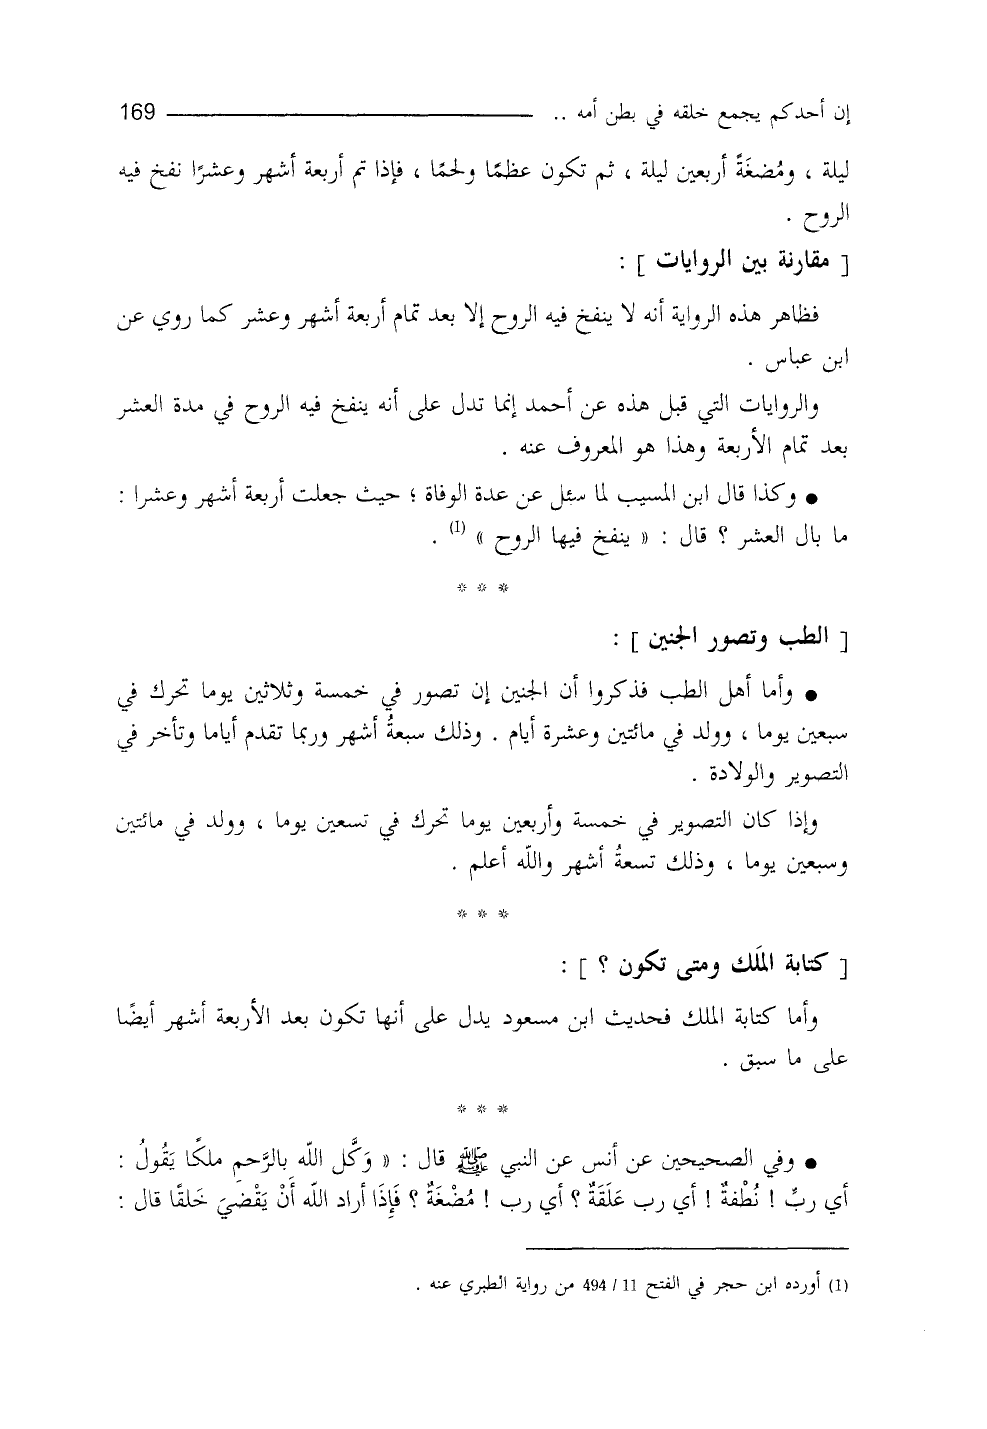 إن أحدكم يجمع خلقه في بطن أمه .. 169
ليلة ، ومُضغَةً أربعين ليلة ، ثم تكون عظمًا ولحمًا ، فإذا تم أربعة أشهر وعشرًا نفخ فيه
الروح .
[ مقارنة بين الروايات ] :
فظاهر هذه الرواية أنه لا ينفخ فيه الروح إلا بعد تمام أربعة أشهر وعشر كما روي عن
ابن عباس .
والروايات التي قبل هذه عن أحمد إنما تدل على أنه ينفخ فيه الروح في مدة العشر
بعد تمام الأربعة وهذا هو المعروف عنه .
● وكذا قال ابن المسيب لما سئل عن عدة الوفاة ؛ حيث جعلت أربعة أشهر وعشرا :
ما بال العشر ؟ قال : « ينفخ فيها الروح » (1) .
* * *
[ الطب وتصور الجنين ] :
● وأما أهل الطب فذكروا أن الجنين إن تصور في خمسة وثلاثين يوما تحرك في
سبعين يوما ، وولد في مائتين وعشرة أيام . وذلك سبعةُ أشهر وربما تقدم أياما وتأخر في
التصوير والولادة .
وإذا كان التصوير في خمسة وأربعين يوما تحرك في تسعين يوما ، وولد في مائتين
وسبعين يوما ، وذلك تسعةُ أشهر والله أعلم .
* * *
[ كتابة الملَك ومتى تكون ؟ ] :
وأما كتابة الملك فحديث ابن مسعود يدل على أنها تكون بعد الأربعة أشهر أيضًا
على ما سبق .
* * *
● وفي الصحيحين عن أنس عن النبي ﷺ قال : « وَكَّل الله بالرَّحمِ ملكًا يَقُولُ :
أي ربِّ ! نُطْفةٌ ! أي رب عَلَقَةٌ ؟ أي رب ! مُضْغَةٌ ؟ فَإِذَا أراد الله أَنْ يَقْضيَ خَلقًا قال :
(1) أورده ابن حجر في الفتح 11 / 494 من رواية الطبري عنه .